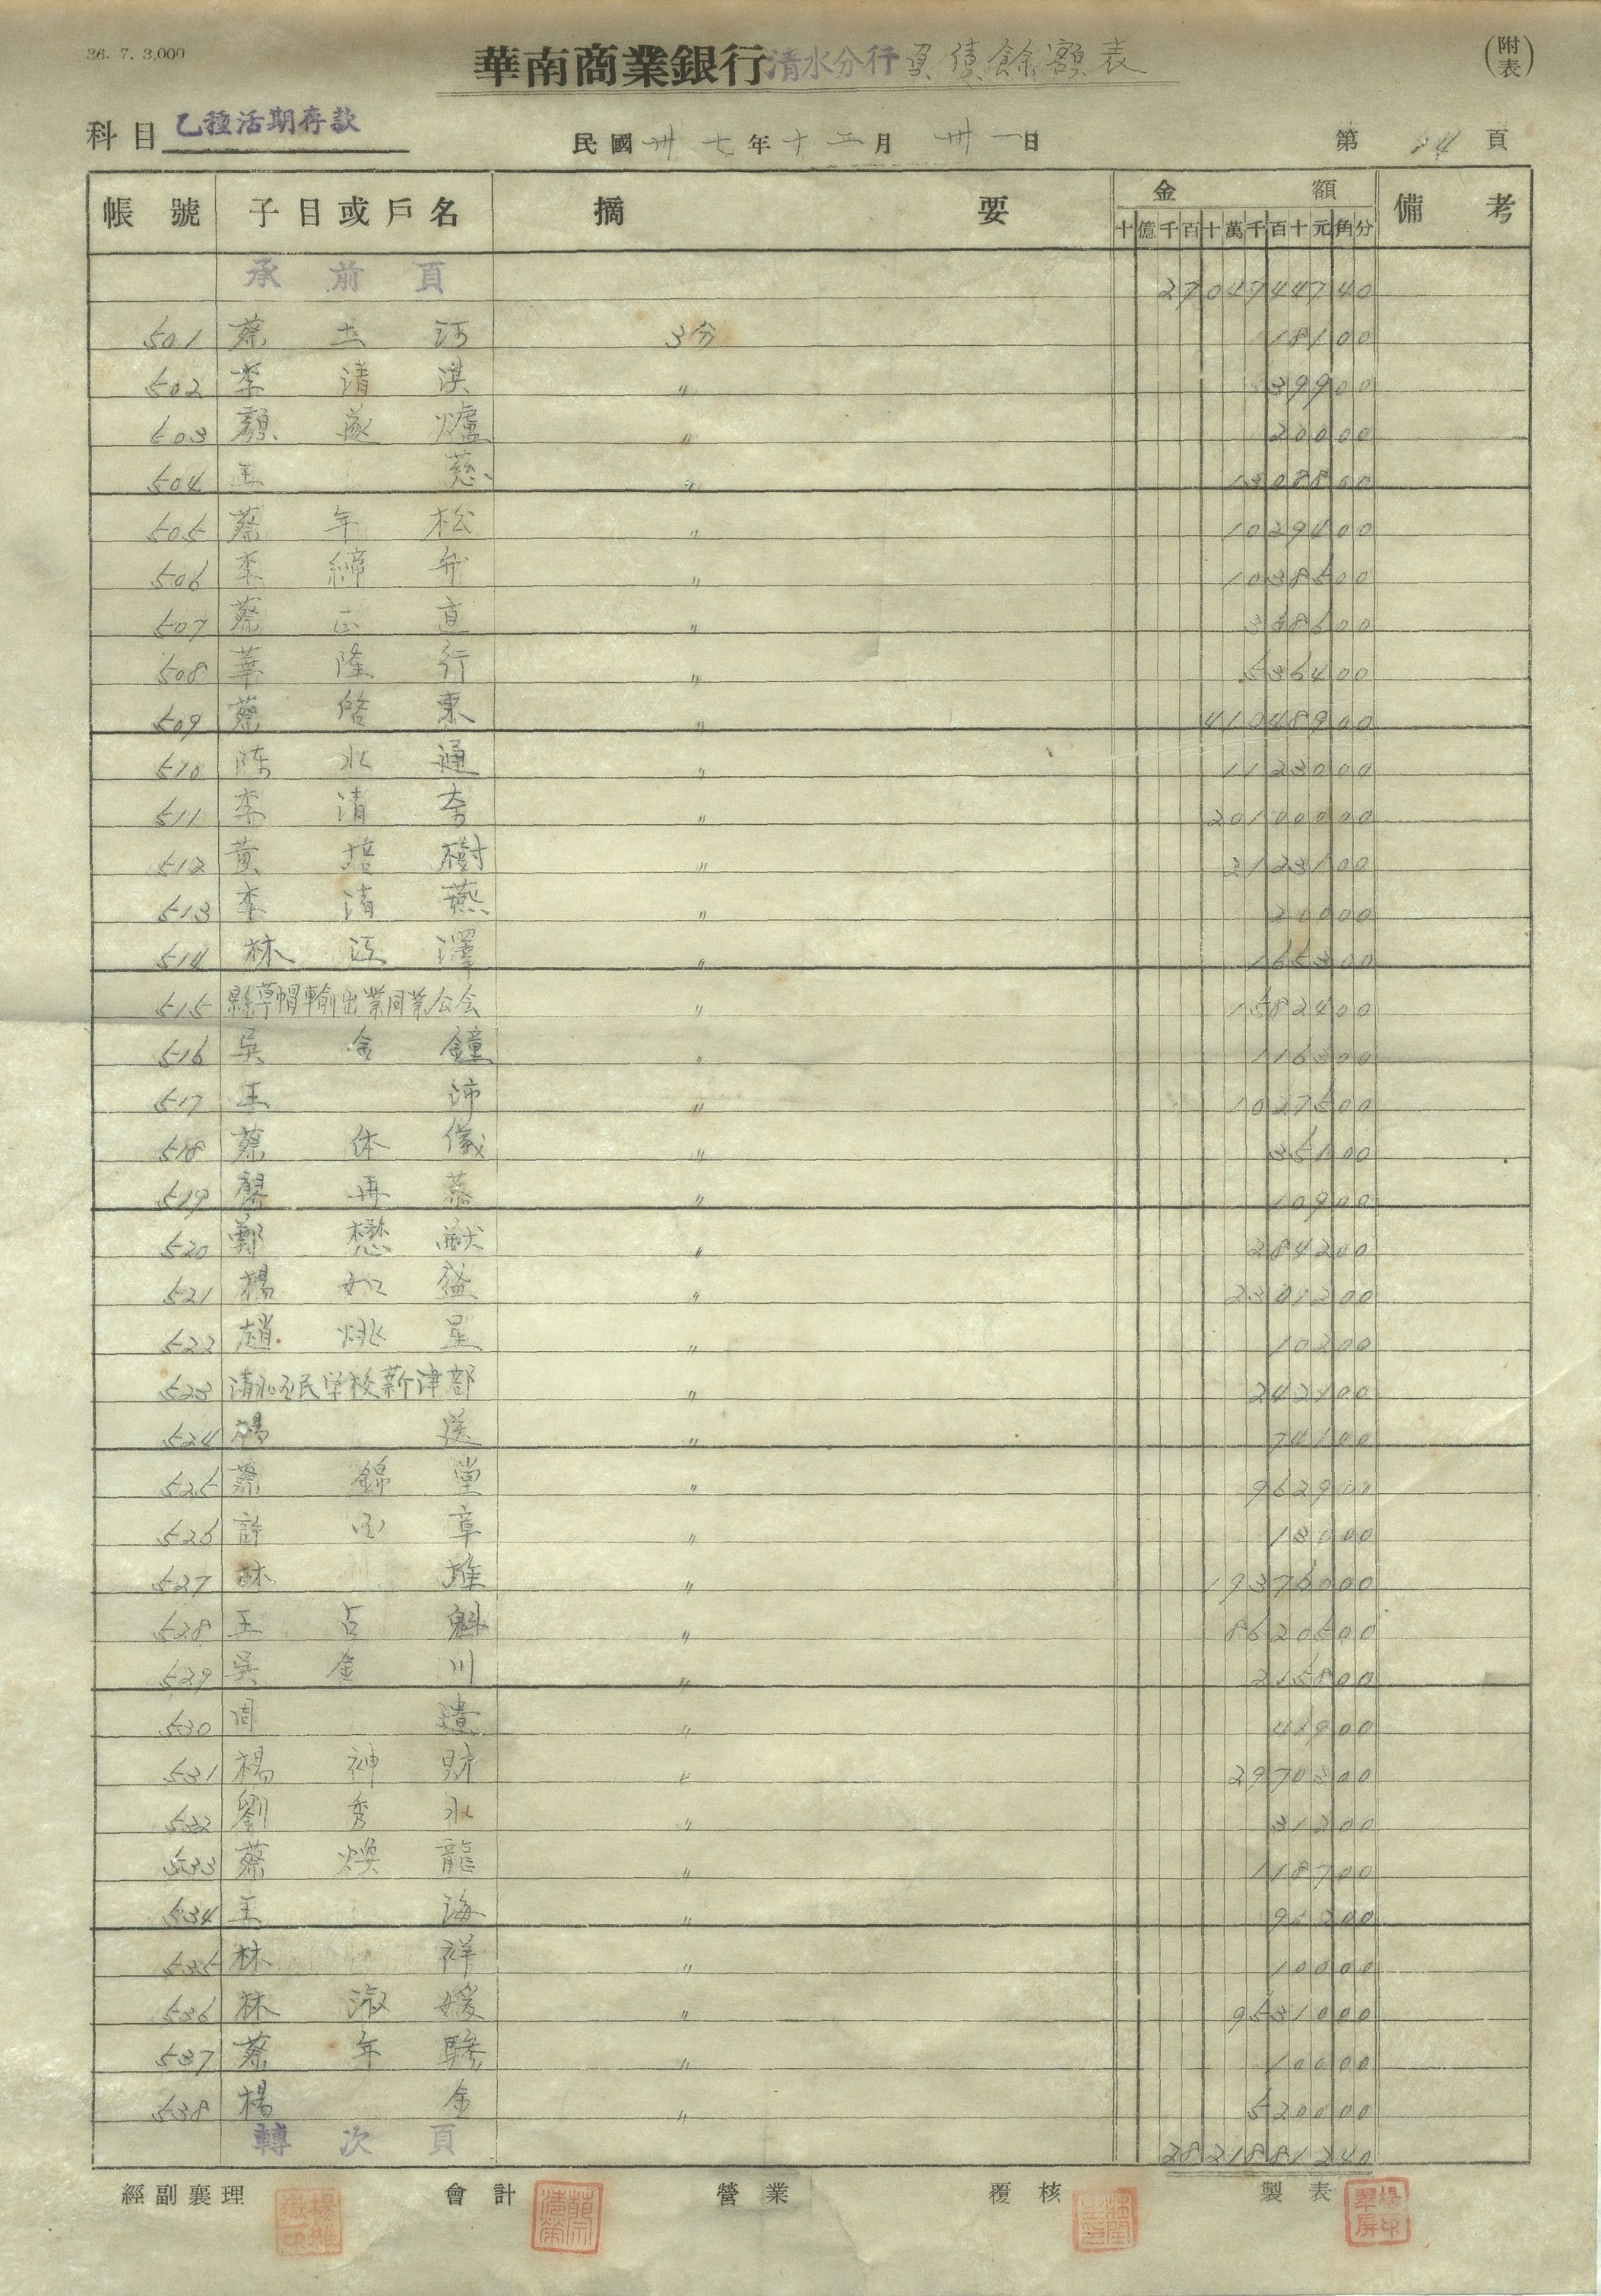 36. 7. 3,000
華南商業銀行清水分行資債餘額表
(附表)
科目 乙種活期存款 民國卅七年十二月卅一日 第 14 頁
帳號 子目或戶名 摘要 金額 備考
十億千百十萬千百十元角分
承前頁 27047447 40
501 蔡土河 3分 1181 00
502 李清淇 〃 399 00
503 顏逐爐 〃 200 00
504 王慈 〃 13088 00
505 蔡年松 〃 10294 00
506 李締弁 〃 10385 00
507 蔡正直 〃 3386 00
508 華隆行 〃 5364 00
509 蔡啓東 〃 410489 00
510 陈水通 〃 11230 00
511 李清奇 〃 201000 00
512 黃培樹 〃 31231 00
513 李清燕 〃 200 00
514 林江澤 〃 1653 00
515 縣草帽輸出業同業公会 〃 15824 00
516 吳金鐘 〃 1163 00
517 王沛 〃 10275 00
518 蔡休儀 〃 351 00
519 再慕 〃 109 00
520 鄭懋猷 〃 2842 00
521 楊如盛 〃 23012 00
522 趙姚星 〃 102 00
523 清水国民学校新津部 〃 2421 00
524 楊送 〃 741 00
525 蔡錦堂 〃 9629 00
526 許章 〃 130 00
527 林堆 〃 193760 00
528 王占魁 〃 86205 00
529 吳金川 〃 2158 00
530 周遺 〃 419 00
531 楊神財 〃 29703 00
532 劉秀水 〃 312 00
533 蔡煥龍 〃 1187 00
534 王海 〃 952 00
535 林祥 〃 100 00
536 林淑媛 〃 95310 00
537 蔡年騫 〃 100 00
538 楊金 〃 5200 00
轉次頁 28218812 40
經副襄理 會計 營業 覆核 製表